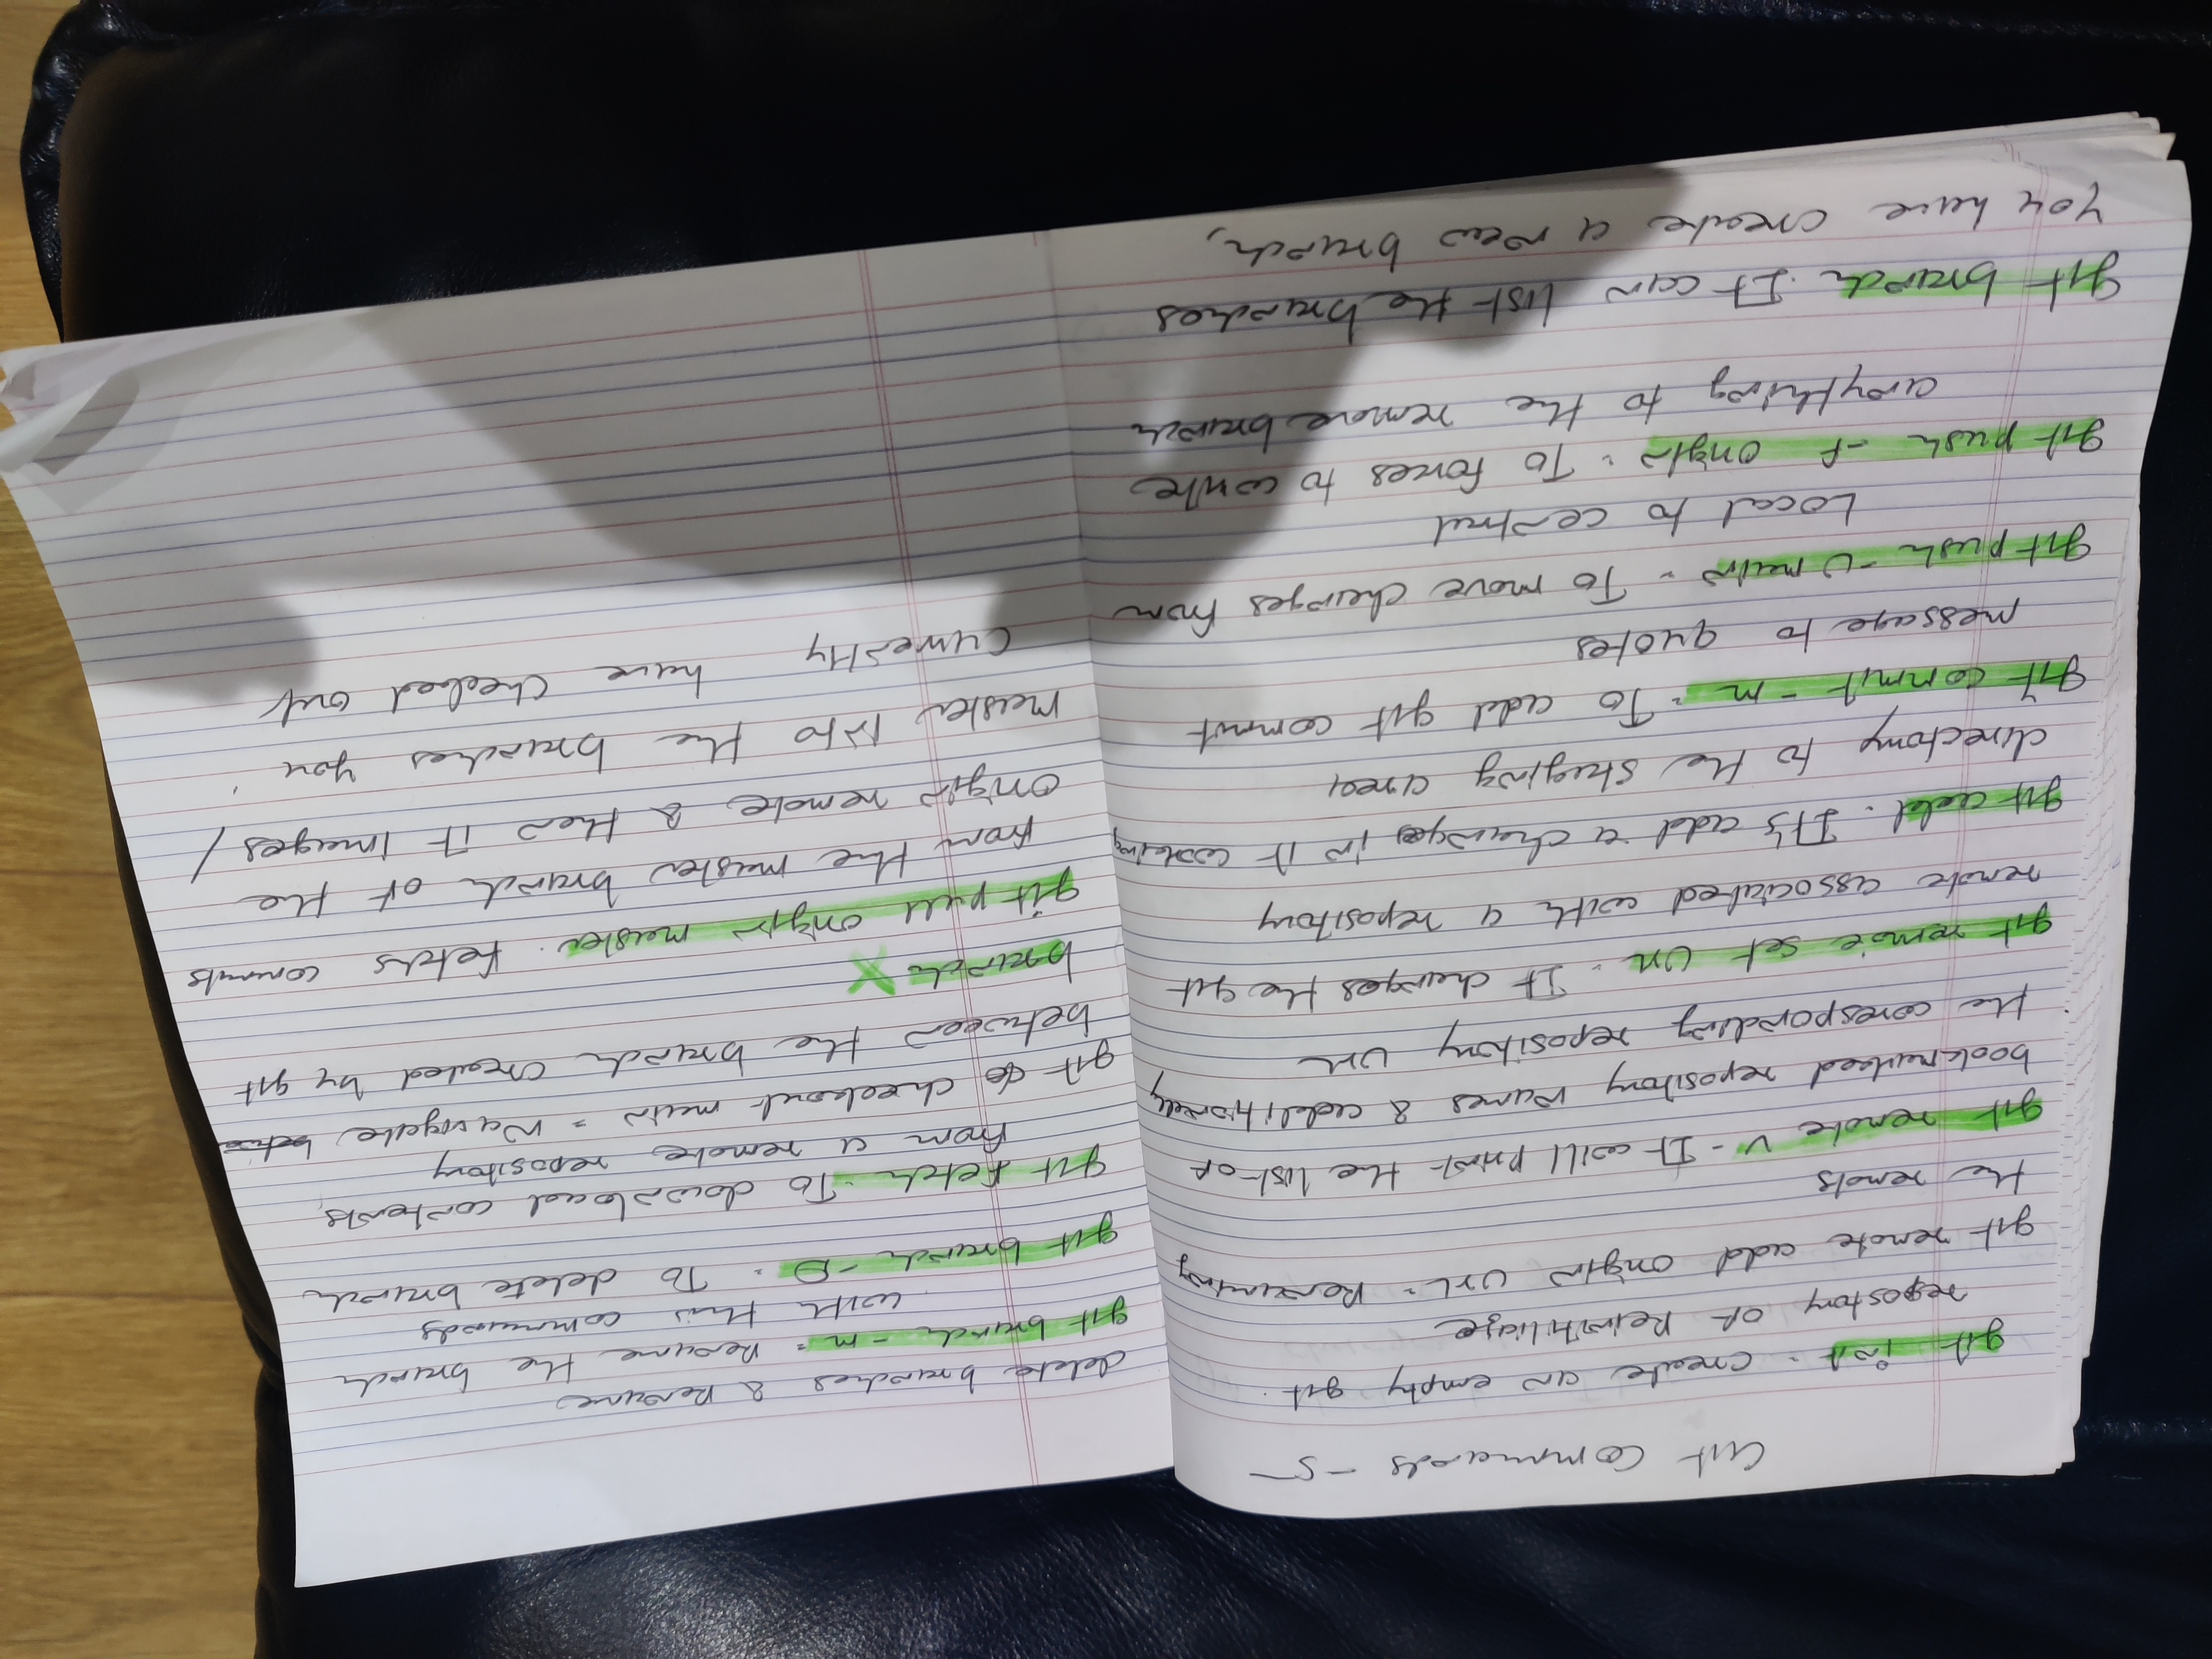 Git Commands - 5
git init - create an empty git
repostory or Reinitiliaze
git remote add origin url - Renaming
the remots
git remote v - It will print the list of
bookmarked repository names & additionally
the coresponding repository url
git remoie set url - It changes the git
remote associated with a repository
git add - It's add a changes in it working
directory to the staging area
git commit - m - To add git commit
message to quotes
git push -u main - To move changes from
Local to central
git push -f origin - To forces to write
anything to the remove branch
git branch - It can list the branches
you have create a new branch,
delete branches & Rename
git branch - m = Rename the branch
with this commands
git branch -D - To delete branch
git fetch - To download contents
from a remote repository
git checkout main = Navigate
between the branch created by git
branch X
git pull origin master - fetchs commits
from the master branch of the
origin remote & then it images /
master into the branches you
currently have checked out